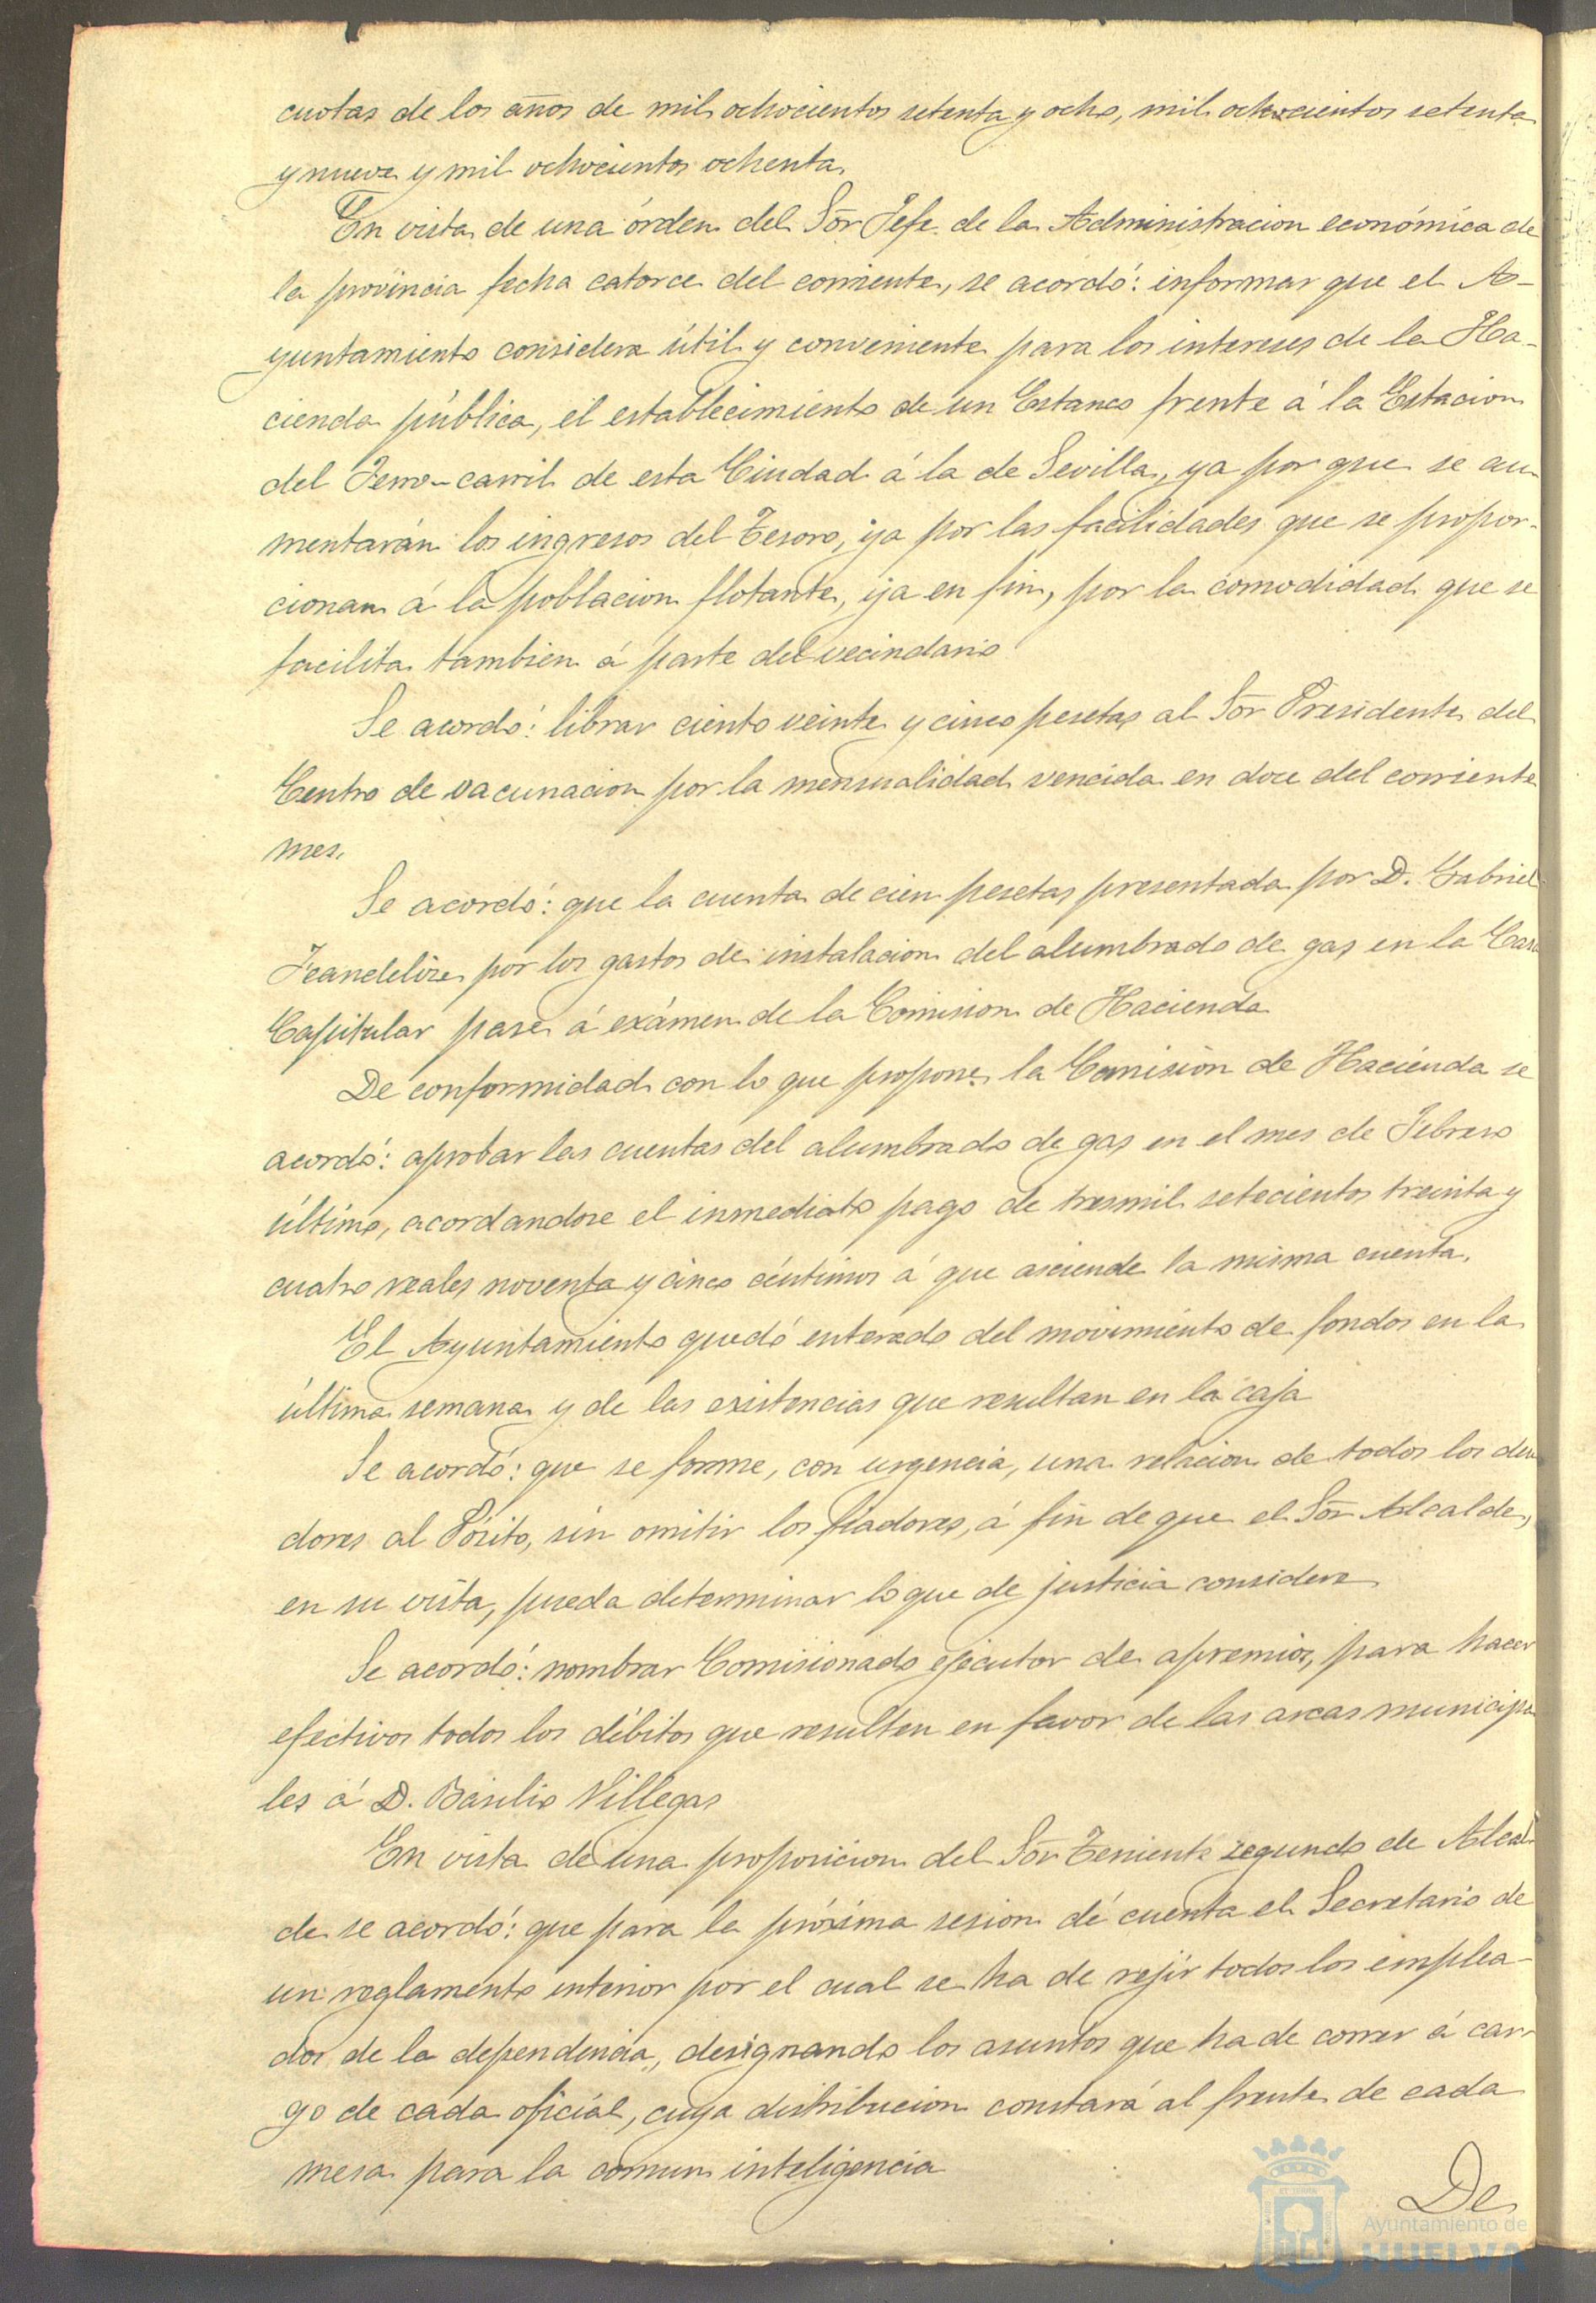 cuotas de los años de mil ochocientos setenta y ocho, mil ochocientos setenta
y nueve y mil ochocientos ochenta.
En vista de una órden del Sōr Jefe de la Administracion económica de
la provincia fecha catorce del corriente, se acordó: informar que el A-
yuntamiento considera útil y conveniente para los intereses de la Ha-
cienda pública, el establecimiento de un Estanco frente á la Estacion
del Ferro-carril de esta Ciudad á la de Sevilla, ya por que se au-
mentarán los ingresos del Tesoro, ya por las facilidades que se propor-
cionan á la poblacion flotante, ya en fin, por la comodidad que se
facilita tambien á parte del vecindario
Se acordó: librar ciento veinte y cinco pesetas al Sōr Presidente del
Centro de vacunacion por la mensualidad vencida en doce del corriente
mes.
Se acordó: que la cuenta de cien pesetas presentada por D. Gabriel
por los gastos de instalacion del alumbrado de gas en la Casa
Capitular pase á exámen de la Comision de Hacienda
De conformidad con lo que propone la Comision de Hacienda se
acordó: aprobar las cuentas del alumbrado de gas en el mes de Febrero
último, acordandose el inmediato pago de tresmil setecientos treinta y
cuatro reales noventa y cinco céntimos á que asciende la misma cuenta.
El Ayuntamiento quedó enterado del movimiento de fondos en la
última semana y de las existencias que resultan en la caja
Se acordó: que se forme, con urgencia, una relacion de todos los deu
dores al Pósito, sin omitir los fiadores, á fin de que el Sōr Alcalde,
en su vista, pueda determinar lo que de justicia considere
Se acordó: nombrar Comisionado ejecutor de apremios, para hacer
efectivos todos los débitos que resulten en favor de las arcas municipa
les á D. Basilio Villegas
En vista de una proposicion del Sōr Teniente segundo de Alcal-
de se acordó: que para la próxima sesion dé cuenta el Secretario de
un reglamento interior por el cual se ha de rejir todos los emplea-
dos de la dependencia, designando los asuntos que ha de correr á car-
go de cada oficial, cuya distribucion constará al frente de cada
mesa para la comun inteligencia
De
Ayuntamiento de
HUELVA